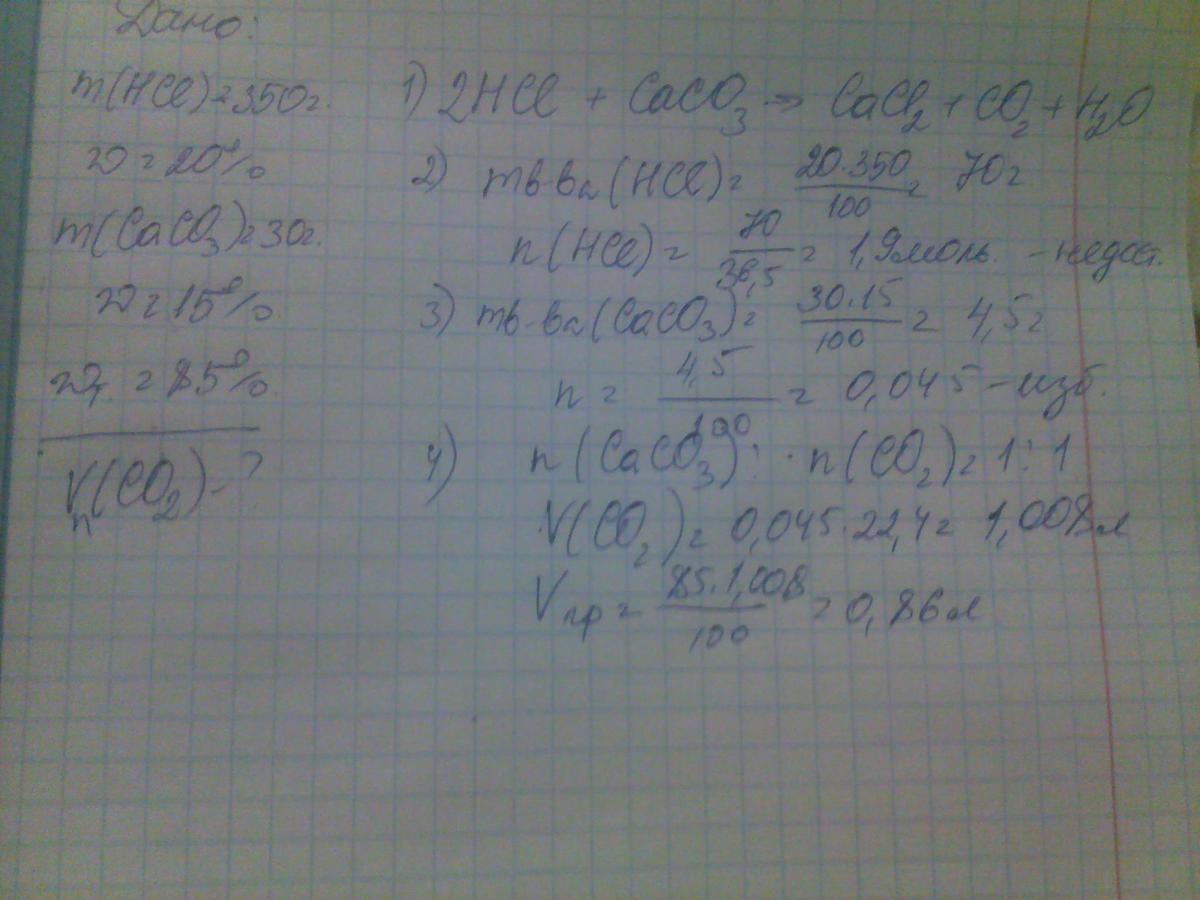 Дано:
m(HCl)=350г.
w=20%
m(CaCO3)=30г.
w=15%
wп.=85%
Vп(CO2)-?
1) 2HCl + CaCO3 → CaCl2 + CO2 + H2O
2) mв-ва(HCl)= 20·350/100 = 70г
n(HCl)= 70/36,5 = 1,9моль. - недост.
3) mв-ва(CaCO3)= 30·15/100 = 4,5г
n = 4,5/100 = 0,045 - изб.
4) n(CaCO3) : n(CO2)=1:1
V(CO2)= 0,045·22,4= 1,008л
Vпр= 85·1,008/100 = 0,86л